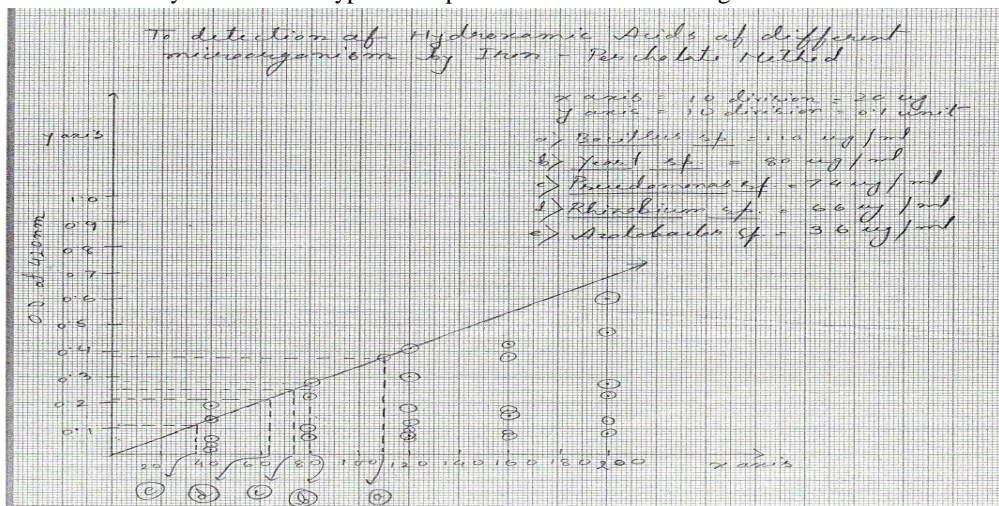 To detection of Hydroxamic Acids of different
microorganism by Iron - Percholate Method
x axis = 10 division = 20 ug
y axis = 10 division = 0.1 unit
a) Bacillus sp = 110 ug/ml
b) Yeast sp. = 80 ug/ml
c) Pseudomonas sp. = 74 ug/ml
d) Rhizobium sp. = 66 ug/ml
e) Azotobacter sp = 36 ug/ml
y axis
OD at 420nm
1.0
0.9
0.8
0.7
0.6
0.5
0.4
0.3
0.2
0.1
20 40 60 80 100 120 140 160 180 200 x axis
e d c b a